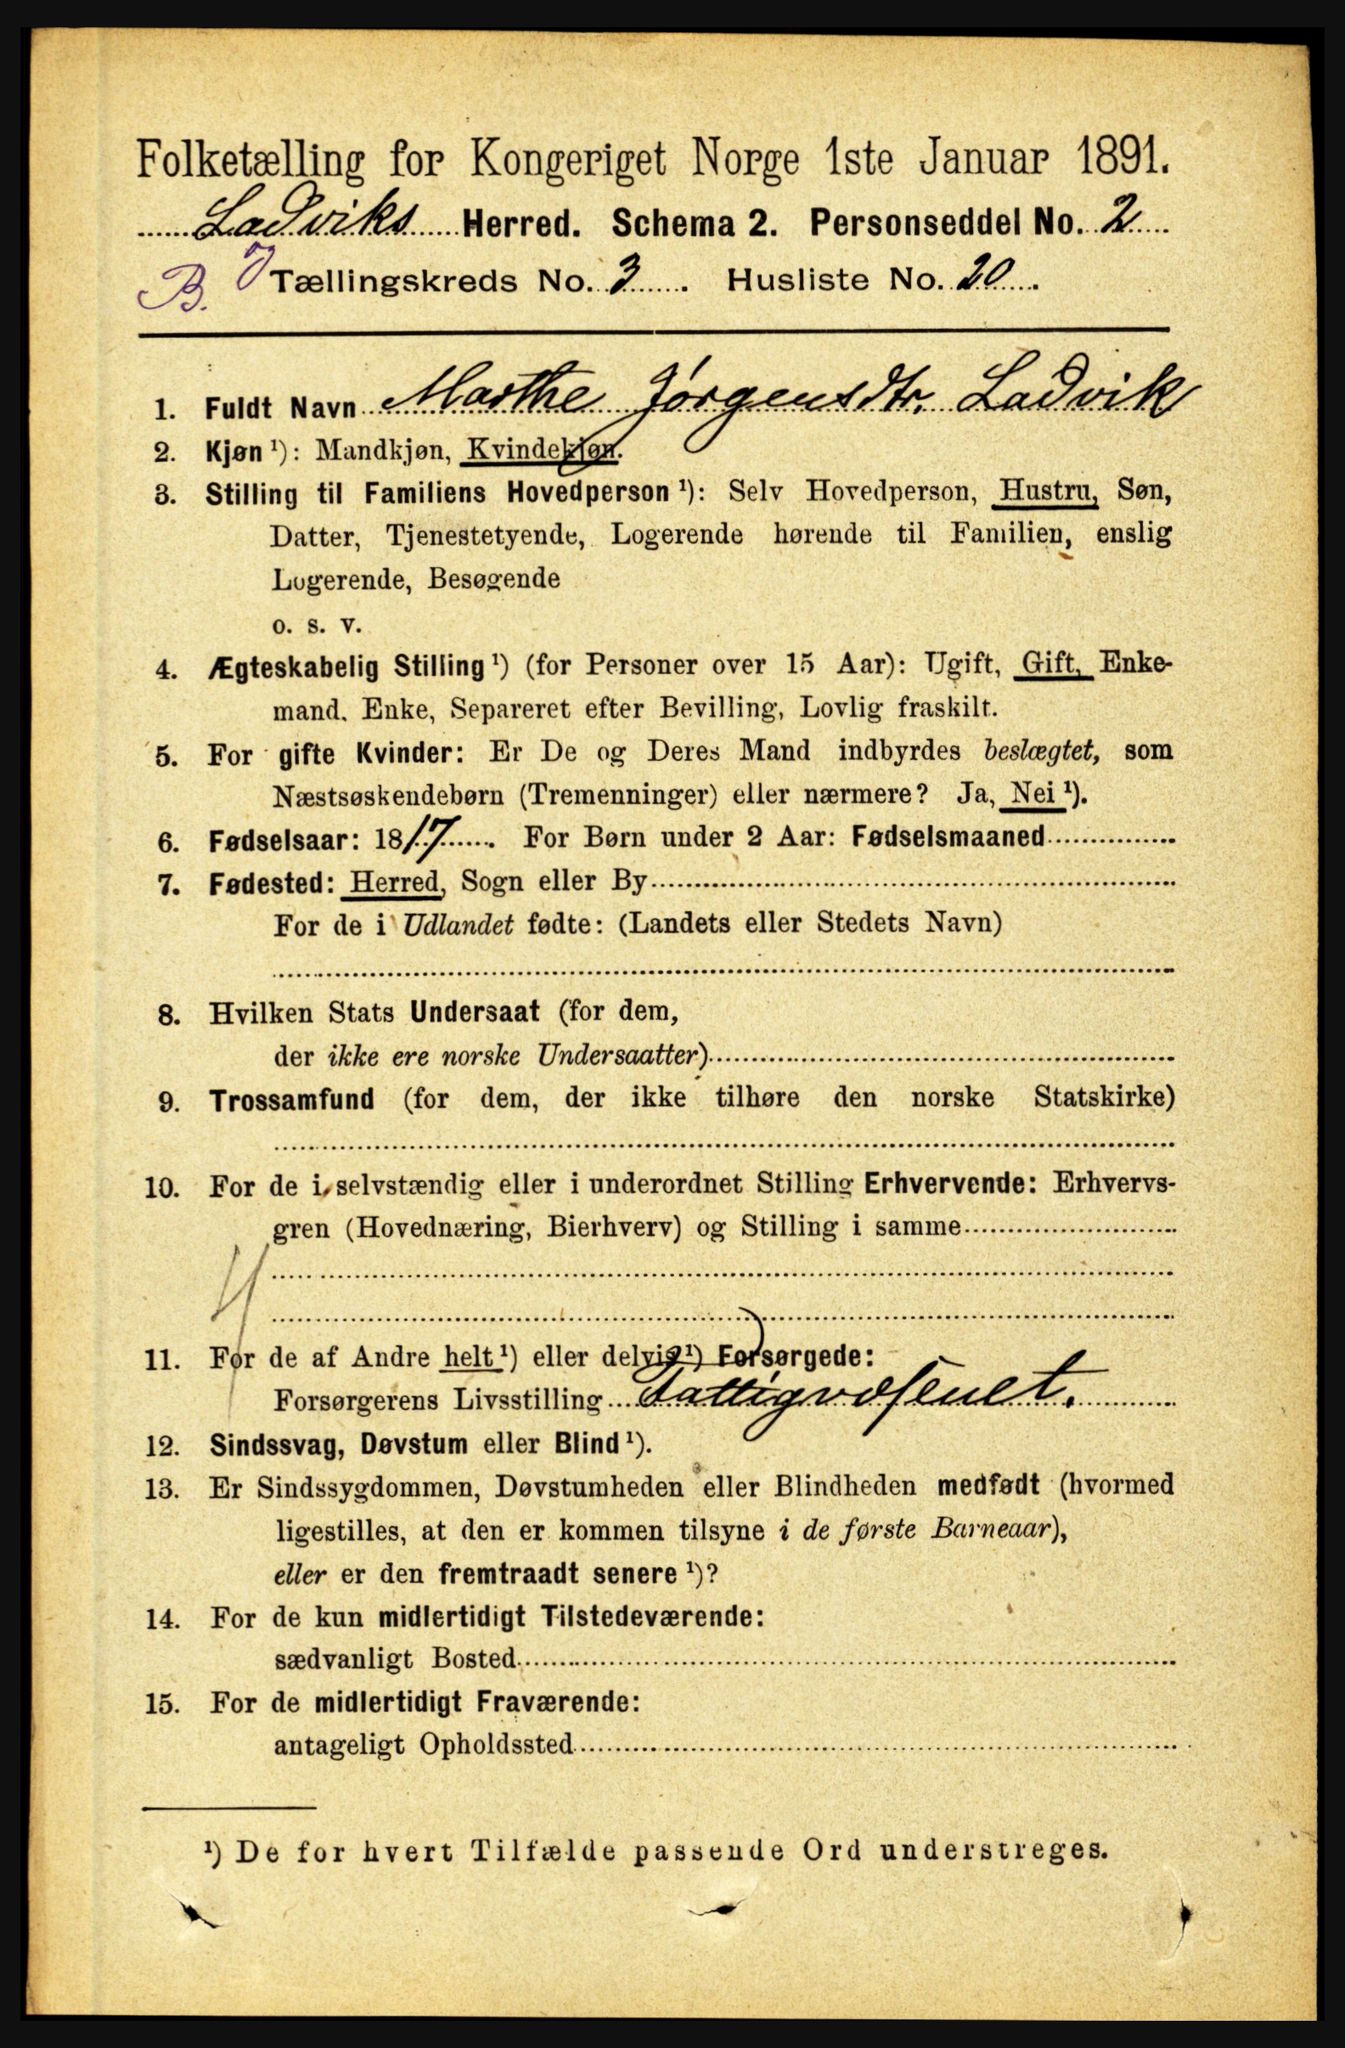 Folketælling for Kongeriget Norge 1ste Januar 1891.
Ladviks Herred. Schema 2. Personseddel No. 2
B. Tællingskreds No. 3. Husliste No. 20.
1. Fuldt Navn Marthe Jørgensdtr. Ladvik
2. Kjøn ¹): Mandkjøn, Kvindekjøn.
3. Stilling til Familiens Hovedperson ¹): Selv Hovedperson, Hustru, Søn,
Datter, Tjenestetyende, Logerende hørende til Familien, enslig
Logerende, Besøgende
o. s. v.
4. Ægteskabelig Stilling ¹) (for Personer over 15 Aar): Ugift, Gift, Enke-
mand, Enke, Separeret efter Bevilling, Lovlig fraskilt.
5. For gifte Kvinder: Er De og Deres Mand indbyrdes beslægtet, som
Næstsøskendebørn (Tremenninger) eller nærmere? Ja, Nei ¹).
6. Fødselsaar: 1817. For Børn under 2 Aar: Fødselsmaaned
7. Fødested: Herred, Sogn eller By
For de i Udlandet fødte: (Landets eller Stedets Navn)
8. Hvilken Stats Undersaat (for dem,
der ikke ere norske Undersaatter)
9. Trossamfund (for dem, der ikke tilhøre den norske Statskirke)
10. For de i selvstændig eller i underordnet Stilling Erhvervende: Erhvervs-
gren (Hovednæring, Bierhverv) og Stilling i samme
11. For de af Andre helt ¹) eller delvis ¹) Forsørgede:
Forsørgerens Livsstilling Fattigvæsenet.
12. Sindssvag, Døvstum eller Blind ¹).
13. Er Sindssygdommen, Døvstumheden eller Blindheden medfødt (hvormed
ligestilles, at den er kommen tilsyne i de første Barneaar),
eller er den fremtraadt senere ¹)?
14. For de kun midlertidigt Tilstedeværende:
sædvanligt Bosted
15. For de midlertidigt Fraværende:
antageligt Opholdssted
¹) De for hvert Tilfælde passende Ord understreges.